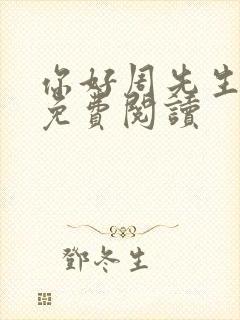 你好周先生
免費閱讀
鄧冬生